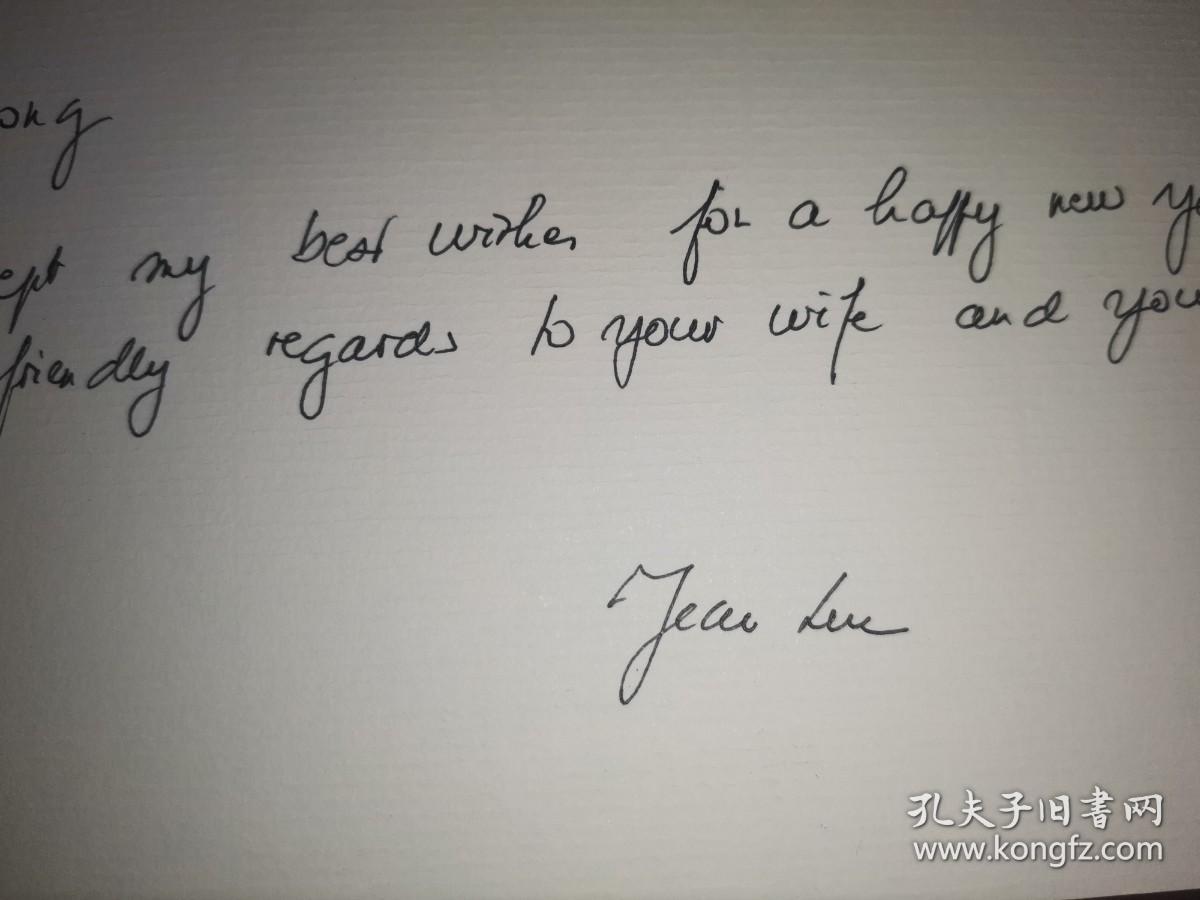 ong
ept my best wishes for a happy new ye
friendly regards to your wife and you
Jean Luc
孔夫子旧书网
www.kongfz.com